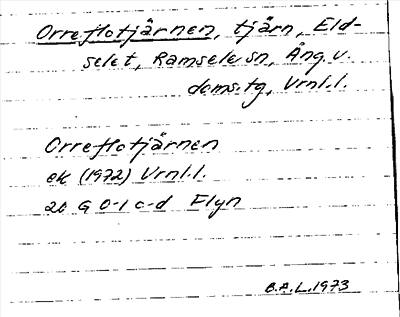 Orreflotjärnen, tjärn, Eld-
selet, Ramsele sn, Ång. v.
doms.tg, Vrnl.l.
Orreflotjärnen
ek (1972) Vrnl.l.
20 G 0-1 c-d Flyn
B.A.L. 1973